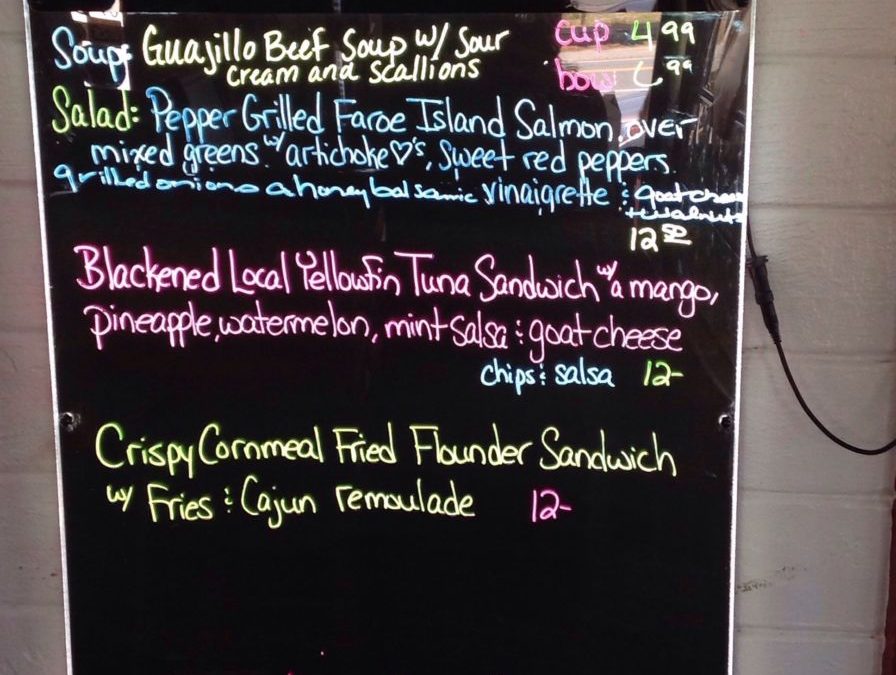 Soup: Guajillo Beef Soup w/ Sour cup 4 99
cream and scallions bowl 99
Salad: Pepper Grilled Faroe Island Salmon over
mixed greens w/ artichoke ♡'s, Sweet red peppers
grilled onions a honey balsamic vinaigrette & goat cheese
+ walnuts
12 50
Blackened Local Yellowfin Tuna Sandwich w/ a mango,
pineapple, watermelon, mint salsa & goat cheese
chips & salsa 12-
Crispy Cornmeal Fried Flounder Sandwich
w/ Fries & Cajun remoulade 12-